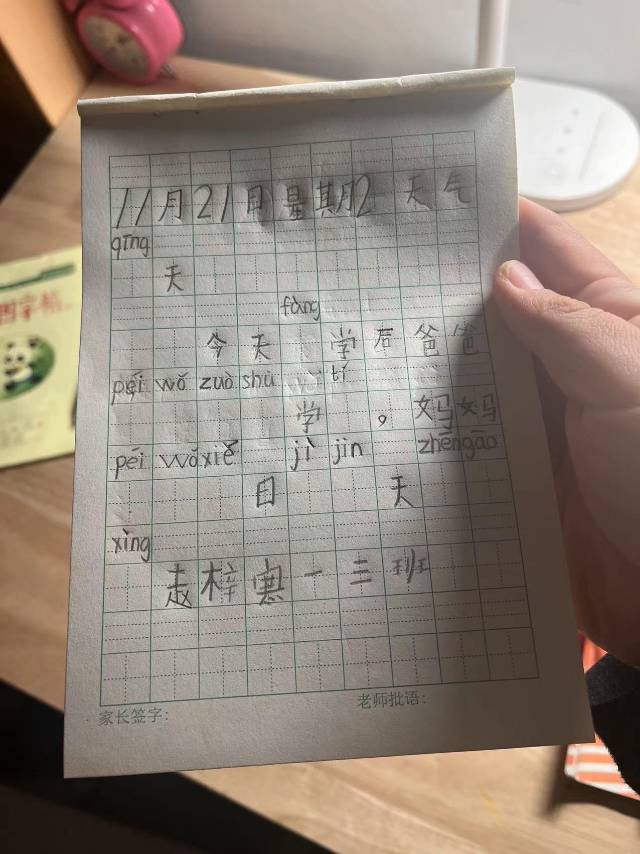 11月21日星期2 天气
qīng
天
fàng
今天 学后爸爸
péi wǒ zuò shù tí
学 , 妈妈
péi wǒ xiě jì jīn zhēn gāo
日 天
xìng
赵梓寒一三班
家长签字: 老师批语:
字帖